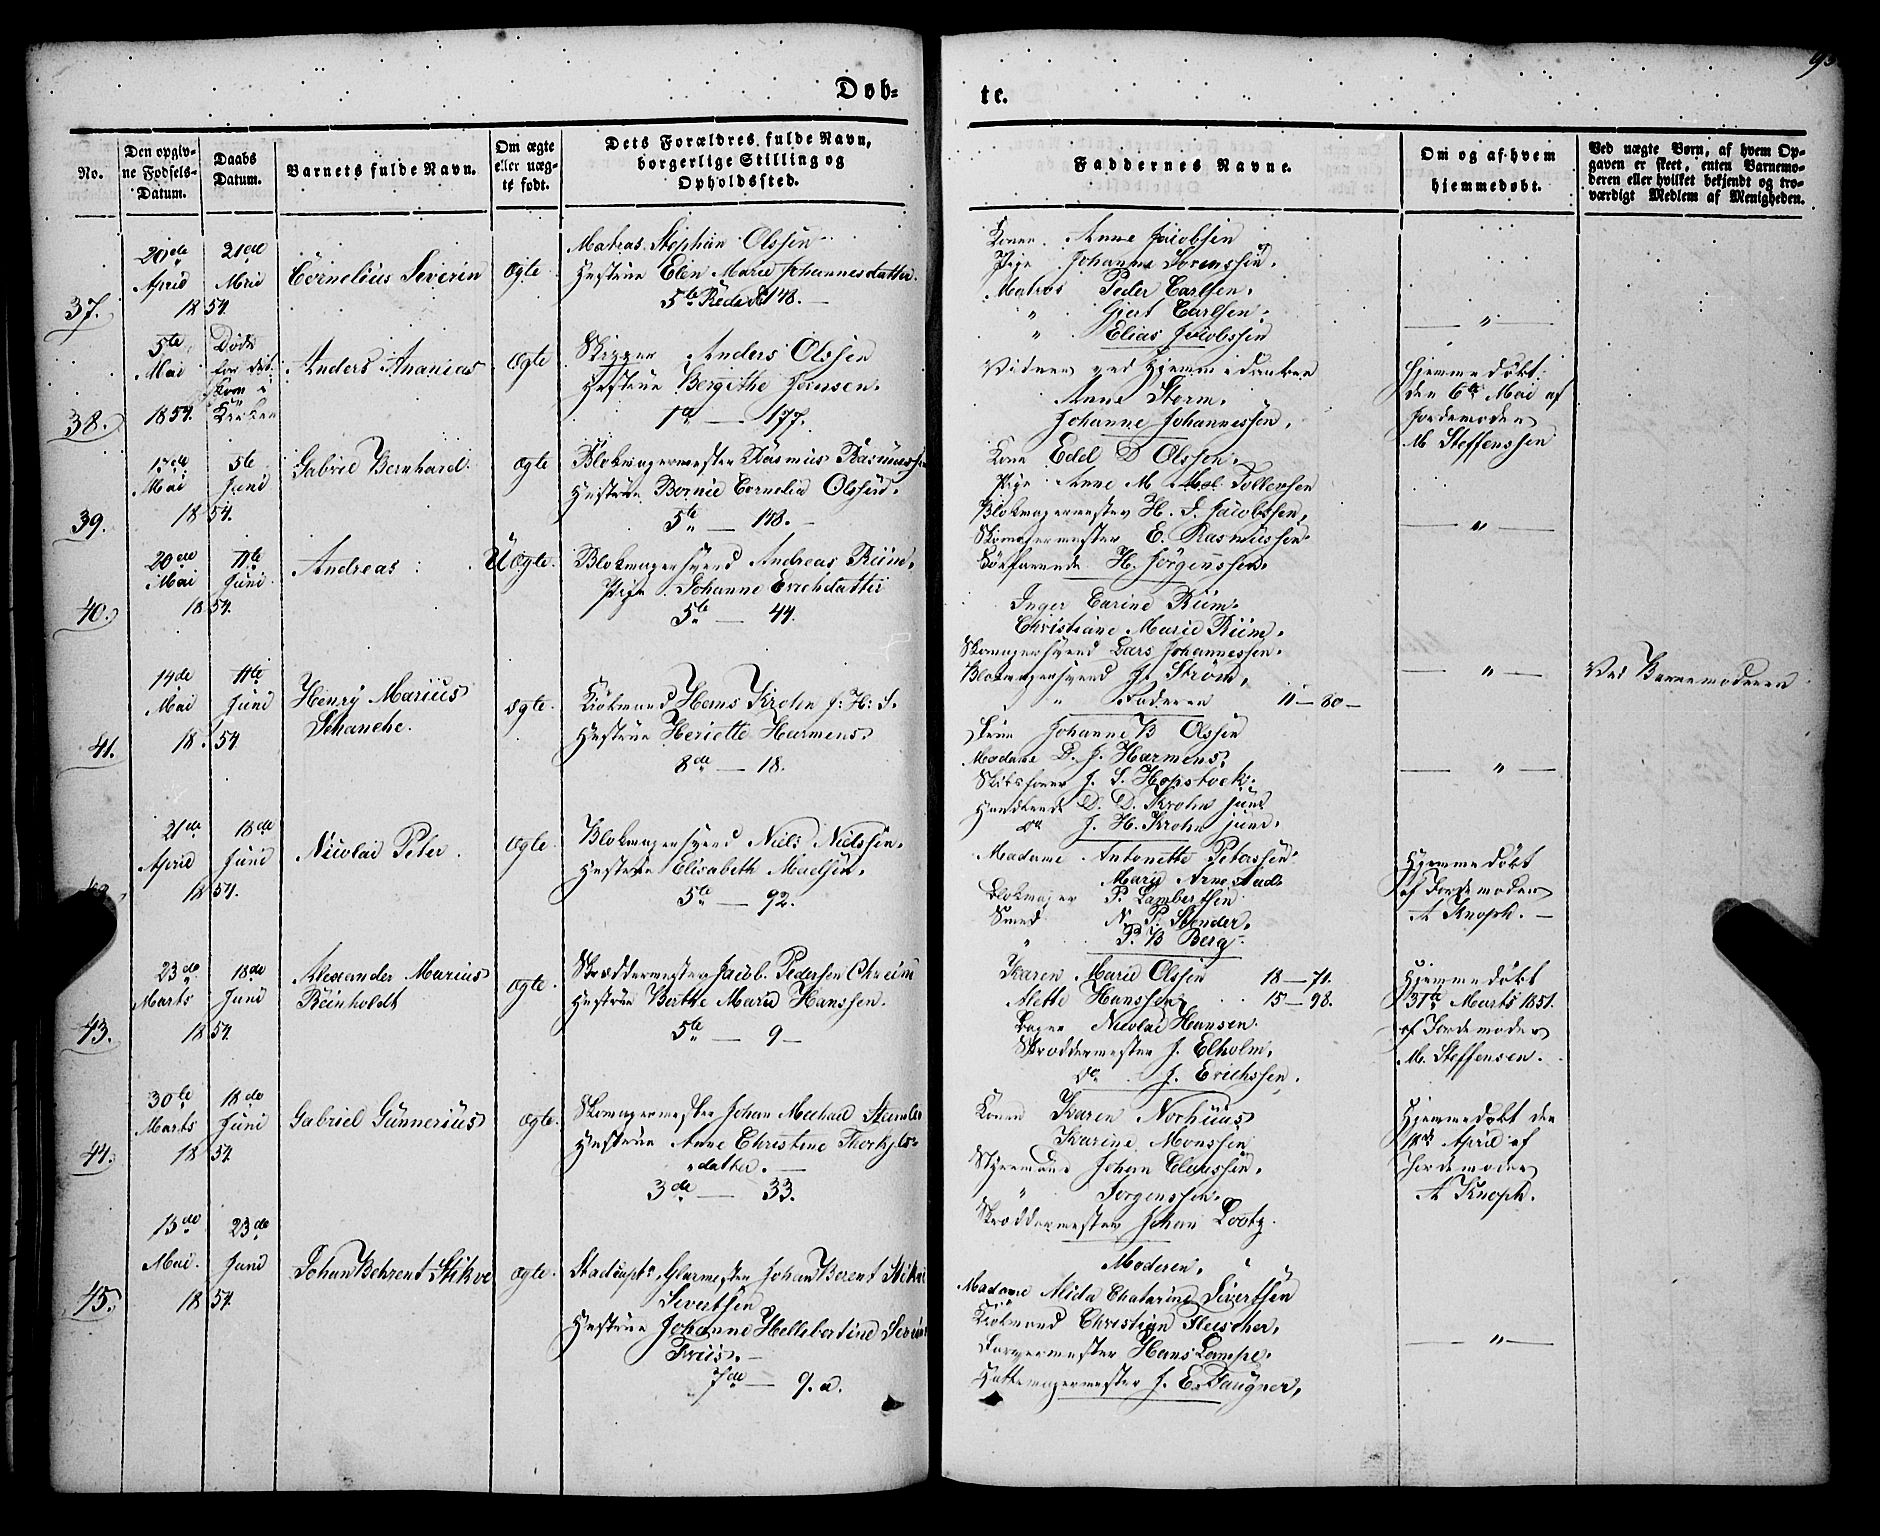 93
Døb-
te.
No.
Den opgiv-
ne Fødsels-
Datum.
Daabs
Datum.
Barnets fulde Navn.
Om ægte
eller uæg-
te født.
Dets Forældres fulde Navn,
borgerlige Stilling og
Opholdssted.
Faddernes Navne.
Om og af hvem
hjemmedøbt.
Ved uægte Børn, af hvem Op-
gaven er skeet, enten Barnemo-
deren eller hvilket bekjendt og tro-
værdigt Medlem af Menigheden.
37.
20de
April
1854.
21de
Mai
Cornelius Severin
Ægte
Matras Stephan Olssen
Hustrue Elen Marie Johannesdatter
5te Rode № 148.
Konen Anne Jacobsen
Pige Johanne Sørenssen.
Matros Peder Carlsen.
" Giert Carlsen.
" Elias Jacobssen
— " —
38.
5te
Mai
1854.
Døde
før det
kom i
Kirken
Anders Ananias
Ægte
Skipper Anders Olssen
Hustrue Bergithe Jansen.
1ste — 177.
Vidner ved Hjemmedaaben
Anne Storm.
Johanne Johannessen.
Hjemmedøbt
den 6te Mai af
Jordemoder
M. Steffenssen
39.
Mai
1854.
5te
Juni
Gabriel Bernhard.
Ægte
Blokmagermester Rasmus Rasmussen
Hustrue Bernie Cornelia Olssen.
5te — 148. —
Kone Edel D Olssen.
Pige Anne M Tollevsen
Blokmagermester H. J. Jacobssen,
Skomagermester E. Rasmussen
Søefarende H. Jörgenssen.
— " —
40.
20de
Mai
1854.
11te
Juni
Andreas
Uægte.
Blokmagersvend Andreas Riim.
Pige Johanne Erichdatter
5te — 44.
Inger Carine Riim.
Christiane Marie Riim.
Skomagersvend Lars Johannessen.
Blokmagersvend J. Strøm.
" Faderen 11 — 80 —
— " —
Ved Barnemoderen
41.
14de
Mai
1854.
11te
Juni
Henry Marius
Schanche.
Ægte.
Kiøbmand Hans Krohn J: H: S.
Hustrue Heriette Harmens.
8de — 18.
Frue Johanne B Olssen
Madame D. J. Harmens.
Skibsfører J. S. Hopstock.
Handlende D. D. Krohn junr
do J. H. Krohn junr.
— " —
21de
April
1854.
18de
Juni
Nicolai Peter.
Ægte.
Blokmagersvend Niels Nielssen.
Hustrue Elisabeth Madssen.
5te — 92.
Madame Antonette Peterssen
Marie Arne Aads
Blokmager P. Lambertsen
Smed N. P. Stender.
" P. B Berg
Hjemmedøbt
af Jordemoder
A Knoph. —
43.
23de
Marts
1854.
18de
Juni
Alexander Marius
Reinholdt
Ægte.
Skræddermester Jacob Pedersen
Hustrue Berthe Marie Hanssen.
5te — 9 —
Karen Marie Olssen 18 — 71.
Alette Hanssen 15 — 98.
Bager Nicolai Hansen.
Skræddermester J. Elholm.
do J. Erichssen.
Hjemmedøbt
31te Marts 1854.
af Jordemoder
M. Steffensen.
44.
30te
Marts
1854
18de
Juni
Gabriel Gunnerius
Ægte.
Skomagermester Johan Michael
Hustrue Anne Christine Thorkjels-
datter. —
3de — 33.
Konen Karen Norhuus
Karine Monssen
Styrmand Johan Claussen.
" Jörgenssen.
Skræddermester Johan Lootz.
Hjemmedøbt den
April af
Jordemoder
A Knoph.
45.
15de
Mai.
1854.
23de
Juni
Johan Behrent Stikve
Ægte.
Stadcaptn. Glarmester Johan Berent
Sivertsen
Hustrue Johanne Hellebertine
Friis. —
7de — 9. a.
Moderen.
Madame Alida Chatarine Sivertsen
Kiøbmand Christian Fleischer.
Farvermester Hans Lampe.
Hattemagermester J. E. Faugner.
— " —